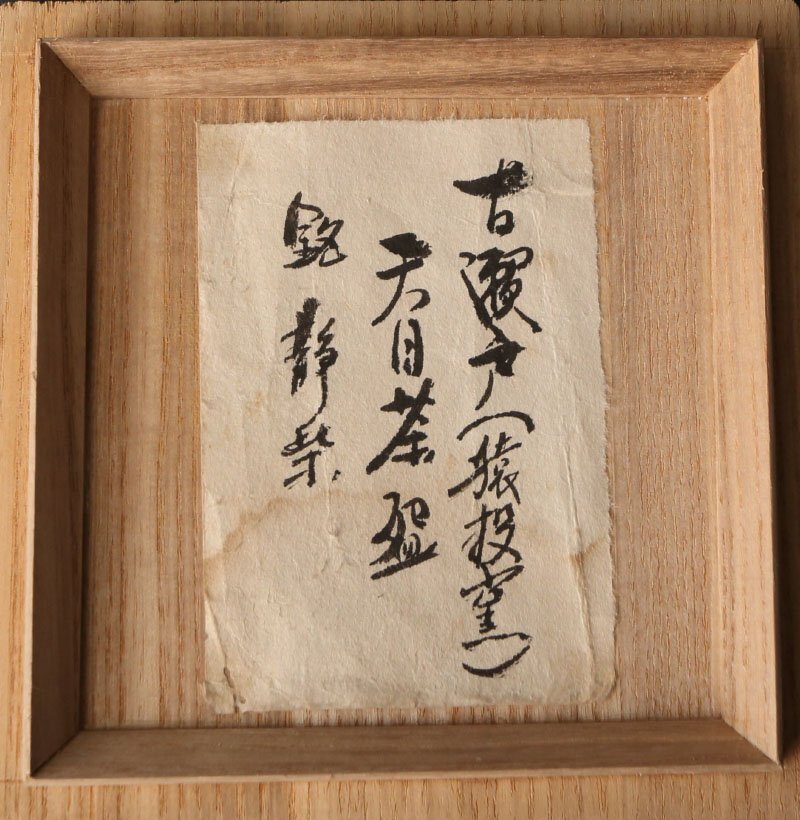 古瀬戸(猿投窯)
天目茶盌
銘 静柴